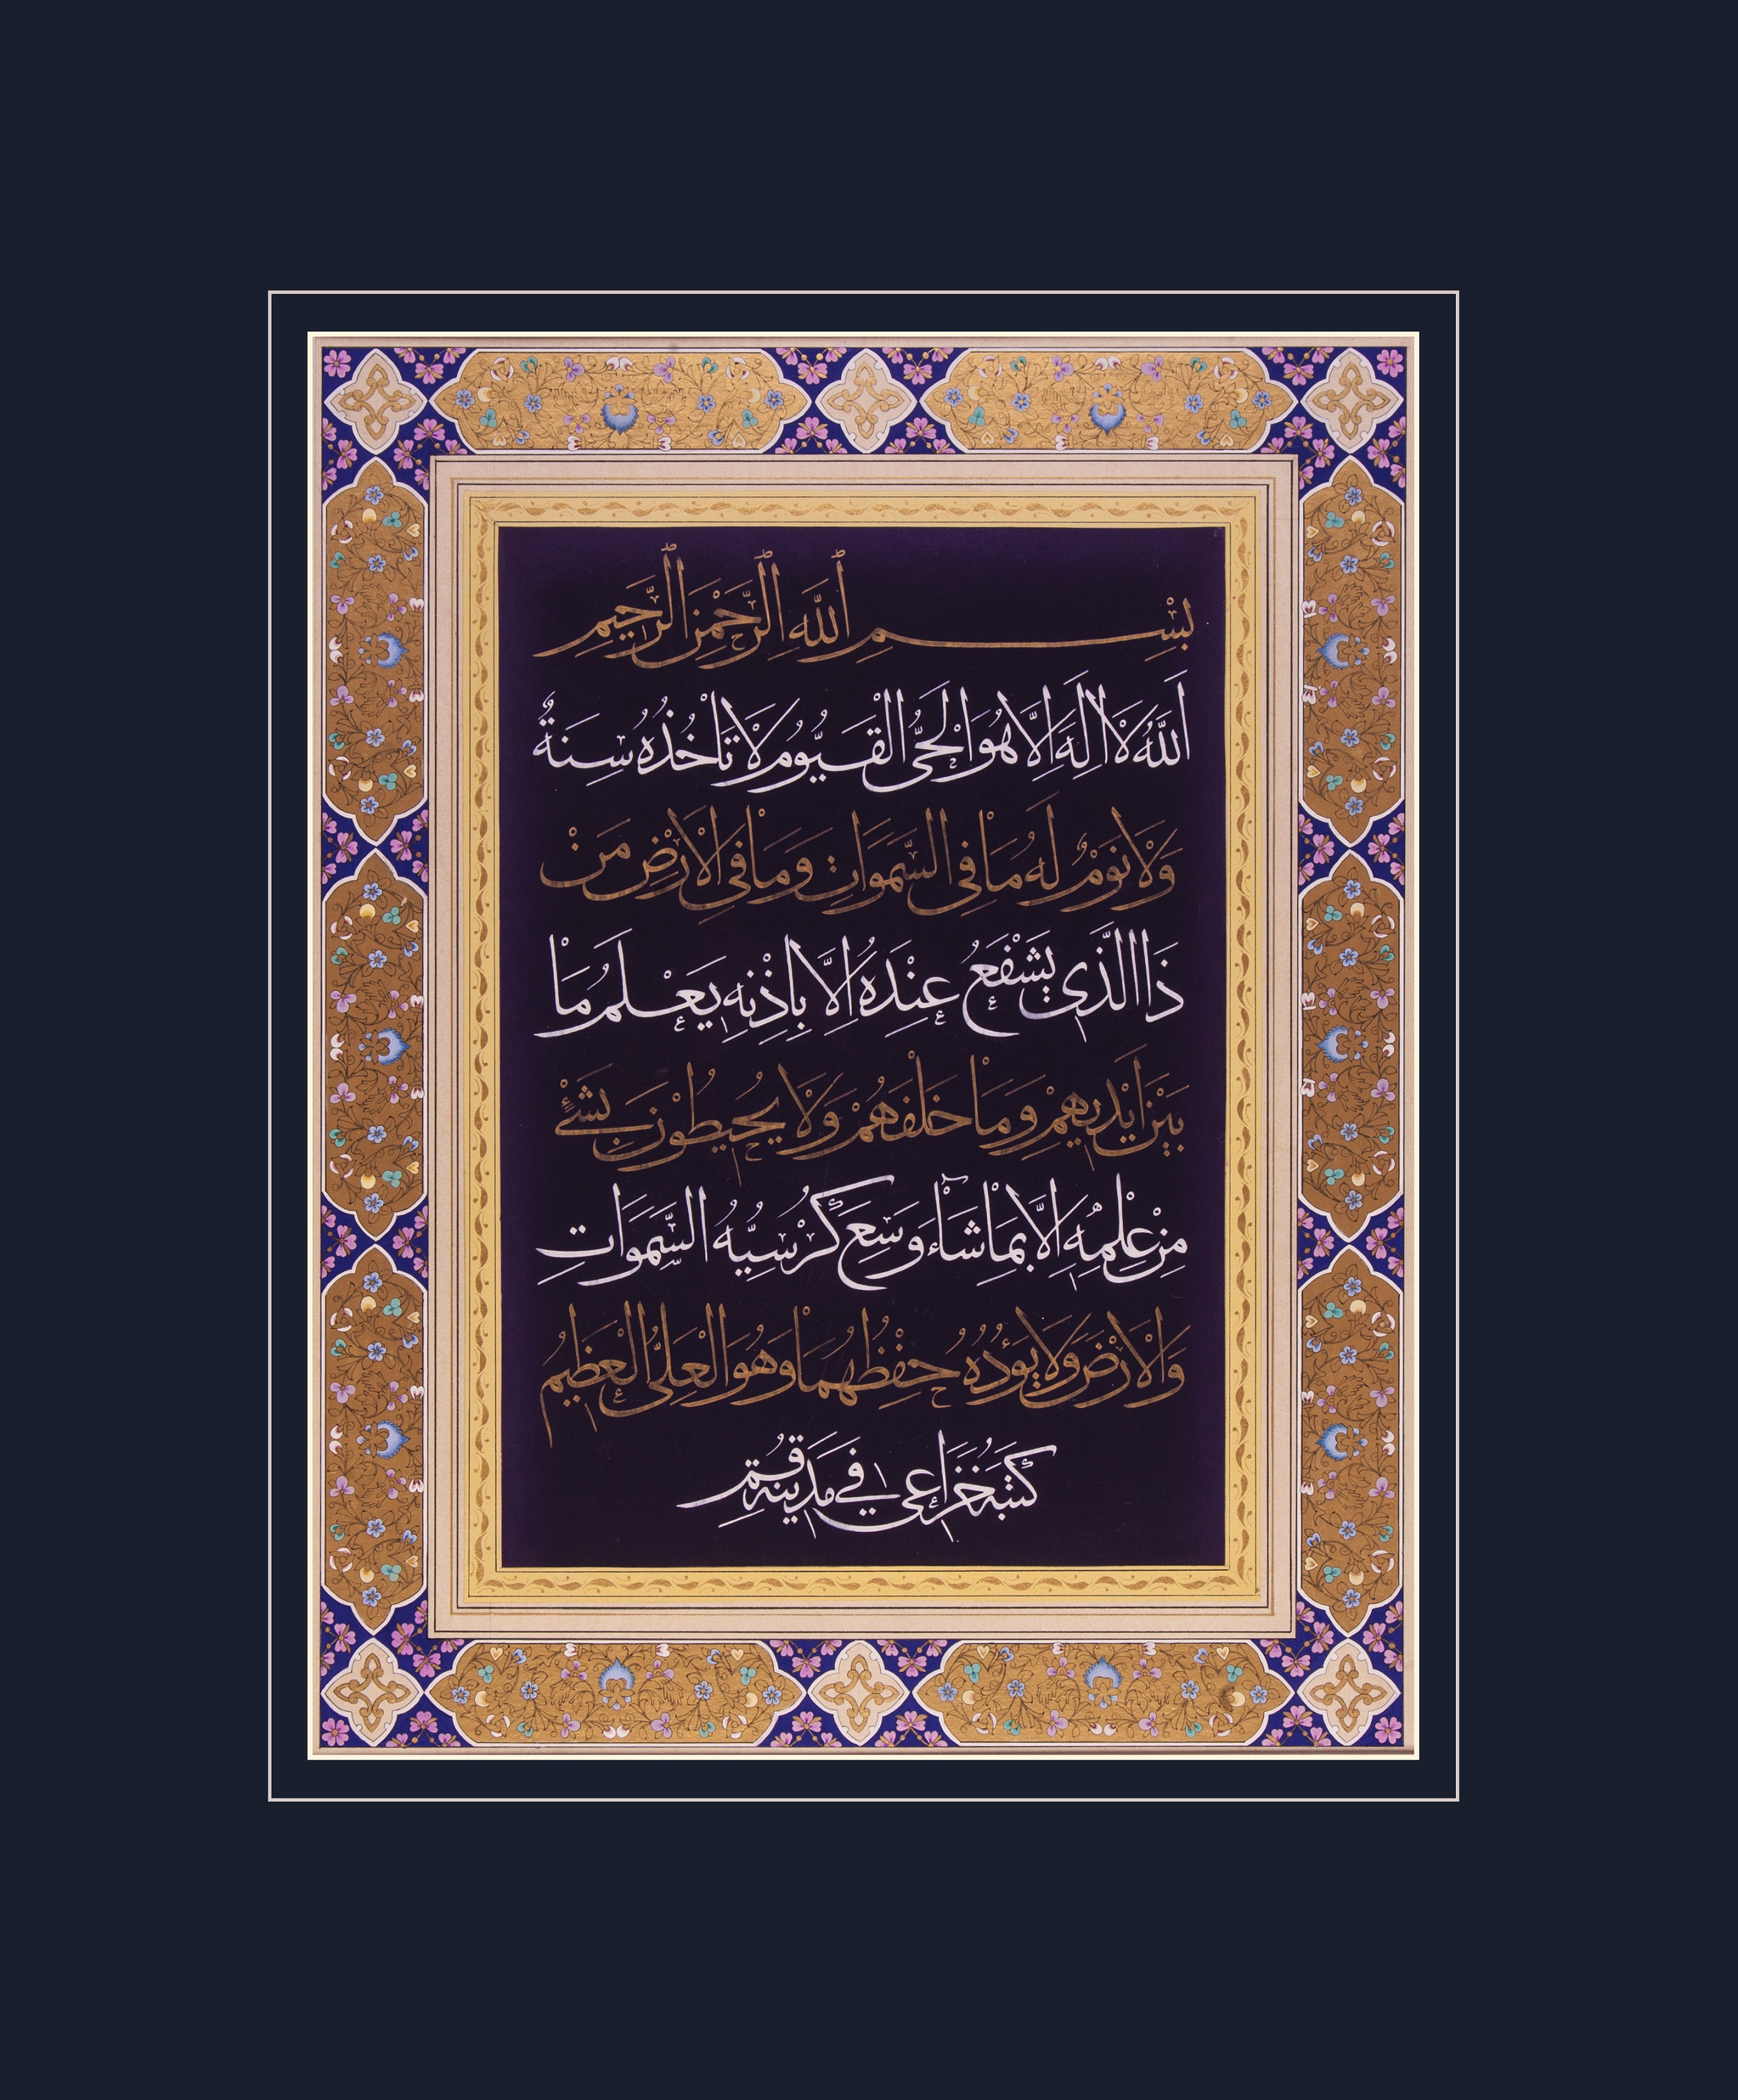 بِسْمِ ٱللَّهِ ٱلرَّحْمٰنِ ٱلرَّحِيمِ
اَللّٰهُ لَا اِلٰهَ اِلَّا هُوَ الْحَىُّ الْقَيُّومُ لَا تَاْخُذُهُ سِنَةٌ
وَلَا نَوْمٌ لَهُ مَا فِى السَّمٰوَاتِ وَمَا فِى الْاَرْضِ مَنْ
ذَا الَّذٖى يَشْفَعُ عِنْدَهُ اِلَّا بِاِذْنِهٖ يَعْلَمُ مَا
بَيْنَ اَيْدٖيهِمْ وَمَا خَلْفَهُمْ وَلَا يُحٖيطُونَ بِشَىْءٍ
مِنْ عِلْمِهٖ اِلَّا بِمَا شَاءَ وَسِعَ كُرْسِيُّهُ السَّمٰوَاتِ
وَالْاَرْضَ وَلَا يَؤُدُهُ حِفْظُهُمَا وَهُوَ الْعَلِىُّ الْعَظٖيمُ
كَتَبَهُ خُزَاعِى فِي مَدِينَه قُم